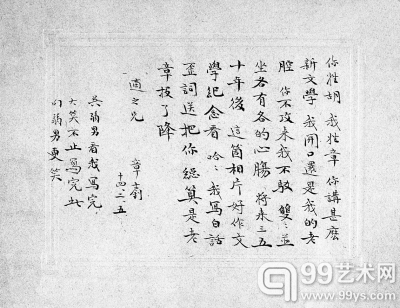 你姓胡 我姓章 你講甚麽
新文學 我開口還是我的老
腔 你不攻来我不駁 雙〻並
坐各有各的心腸 将来三五
十年後 這箇相片好作文
學紀念看 哈〻 我寫白話
歪詞送把你 總算是老
章投了降
適之兄
章
十四 二 五
吳弱男看我寫完
大笑不止 寫完此
句 弱男更笑
99艺术网
www.99ys.com